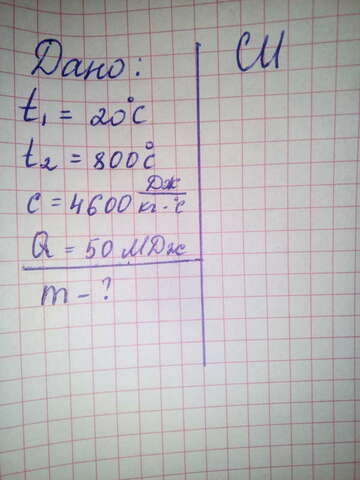 Дано:
СИ
t₁ = 20°C
t₂ = 800°C
c = 4600 Дж/кг·°C
Q = 50 МДж
m - ?